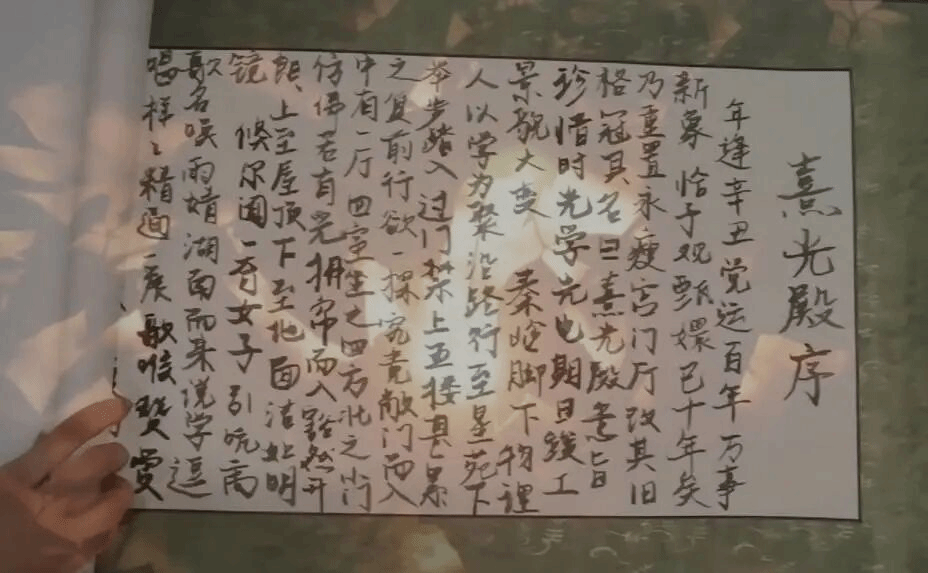 熹光殿序
年逢辛丑党运百年万事
新象恰予观甄嬛已十年矣
乃重置永瘦宫门厅改其旧
格冠其名曰熹光殿意旨
珍惜时光学光也期日竣工
景貌大变秦岭脚下物理
人以学为聚沿路行至星苑下
举步踏入过门禁上五楼具累
之复前行欲一探究竟敞门而入
中有一厅四室坐之四方北之小门
仿佛若有光拥帘而入豁然开
朗、上至屋顶下至地面洁如明
镜倏尔闻一奇女子引吭高
歌名唤雨婧湖面而来说学逗
唱样々精通一展歌喉赞赏